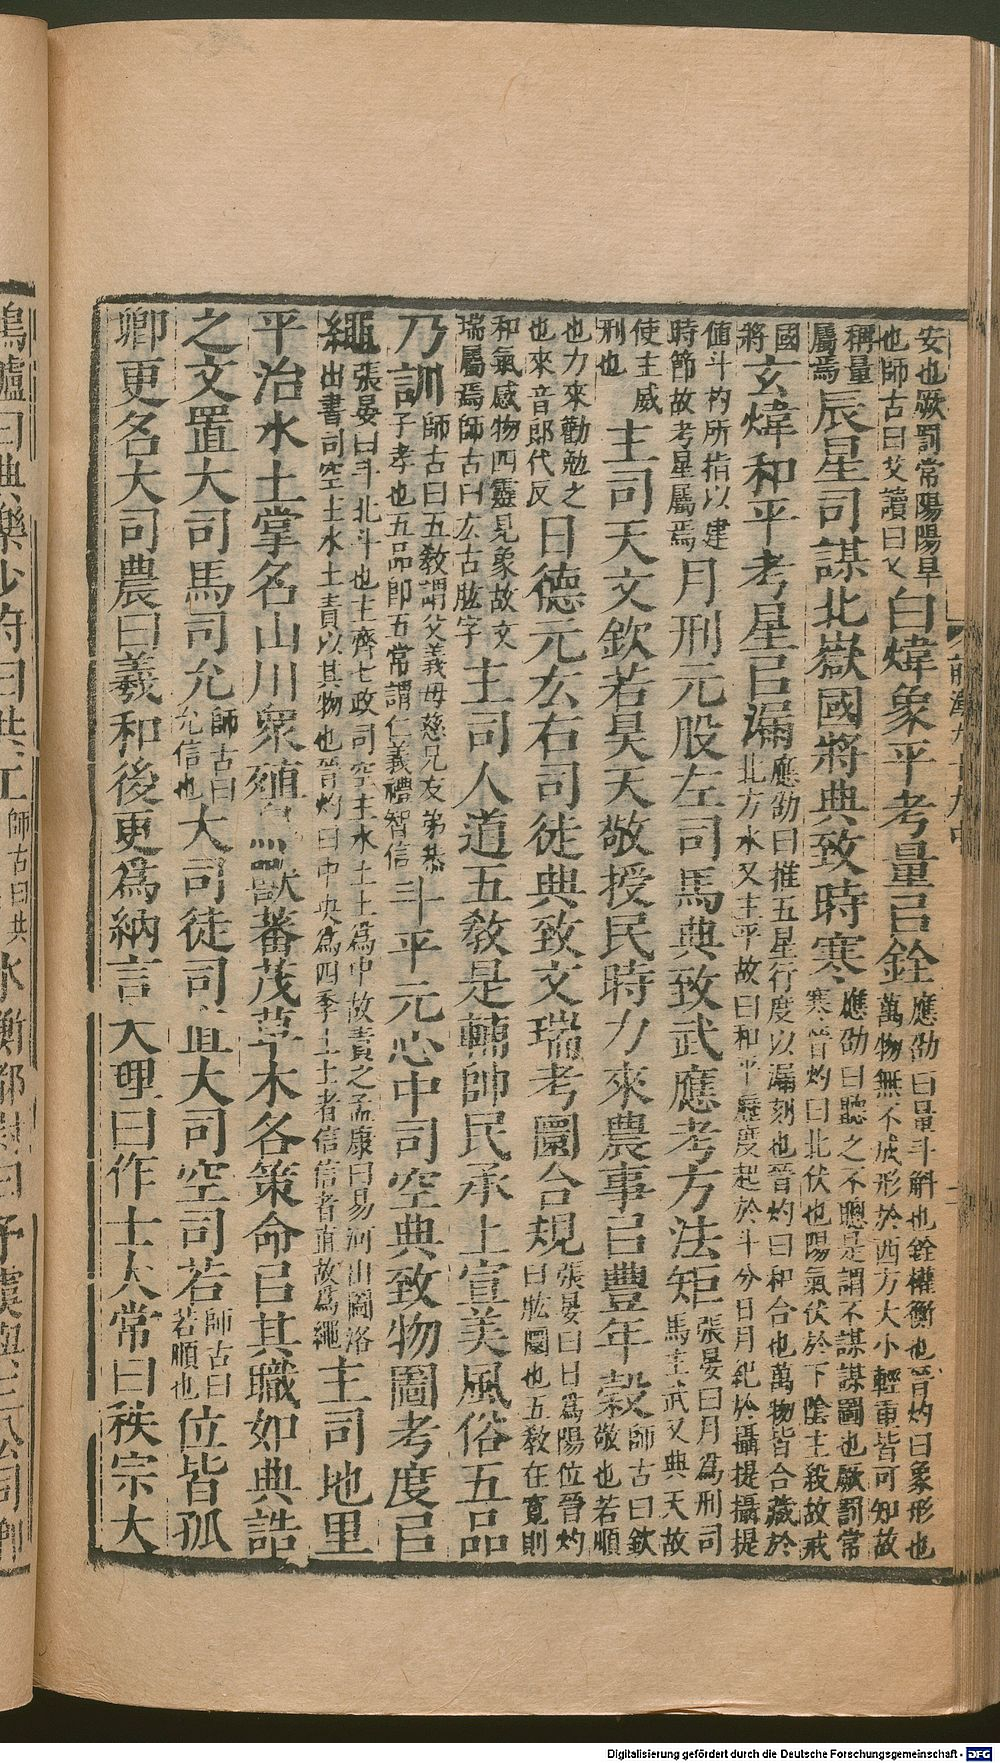 安也厥罰常陽陽旱也師古曰艾讀曰乂白煒象平考量㠯銓應劭曰量斗斛也銓權衡也晉灼曰象形也萬物無不成形於西方大小輕重皆可知故
稱量屬焉辰星司謀北嶽國將典致時寒應劭曰聽之不聰是謂不謀謀圖也厥罰常寒晉灼曰北伏也陽氣伏於下陰主殺故戒
國將玄煒和平考星㠯漏應劭曰推五星行度以漏刻也晉灼曰和合也萬物皆合藏於北方水又主平故曰和平曆度起於斗分日月紀於攝提攝提
值斗杓所指以建時節故考星屬焉月刑元股左司馬典致武應考方法矩張晏曰月為刑司馬主武又典天故
使主威刑也主司天文欽若昊天敬授民時力來農事㠯豐年穀師古曰欽敬也若順
也力來勸勉之也來音郎代反日德元厷右司徒典致文瑞考圜合規張晏曰日為陽位晉灼曰肱圜也五教在寬則
和氣感物四靈見象故文瑞屬焉師古曰厷古肱字主司人道五教是輔帥民承上宣美風俗五品
乃訓師古曰五教謂父義母慈兄友弟恭子孝也五品卽五常謂仁義禮智信斗平元心中司空典致物圖考度㠯
繩張晏曰斗北斗也主齊七政司空主水土土為中故責之孟康曰易河出圖洛出書司空主水土責以其物也晉灼曰中央為四季土土者信信者直故為繩主司地里
平治水土掌名山川衆殖鳥獸蕃茂草木各策命㠯其職如典誥
之文置大司馬司允師古曰允信也大司徒司直大司空司若師古曰若順也位皆孤
卿更名大司農曰羲和後更爲納言大理曰作士太常曰秩宗大
鴻臚曰典樂少府曰共工師古曰共水衡都尉曰予虞與三公司卿
前漢九十九中
Digitalisierung gefördert durch die Deutsche Forschungsgemeinschaft - DFG